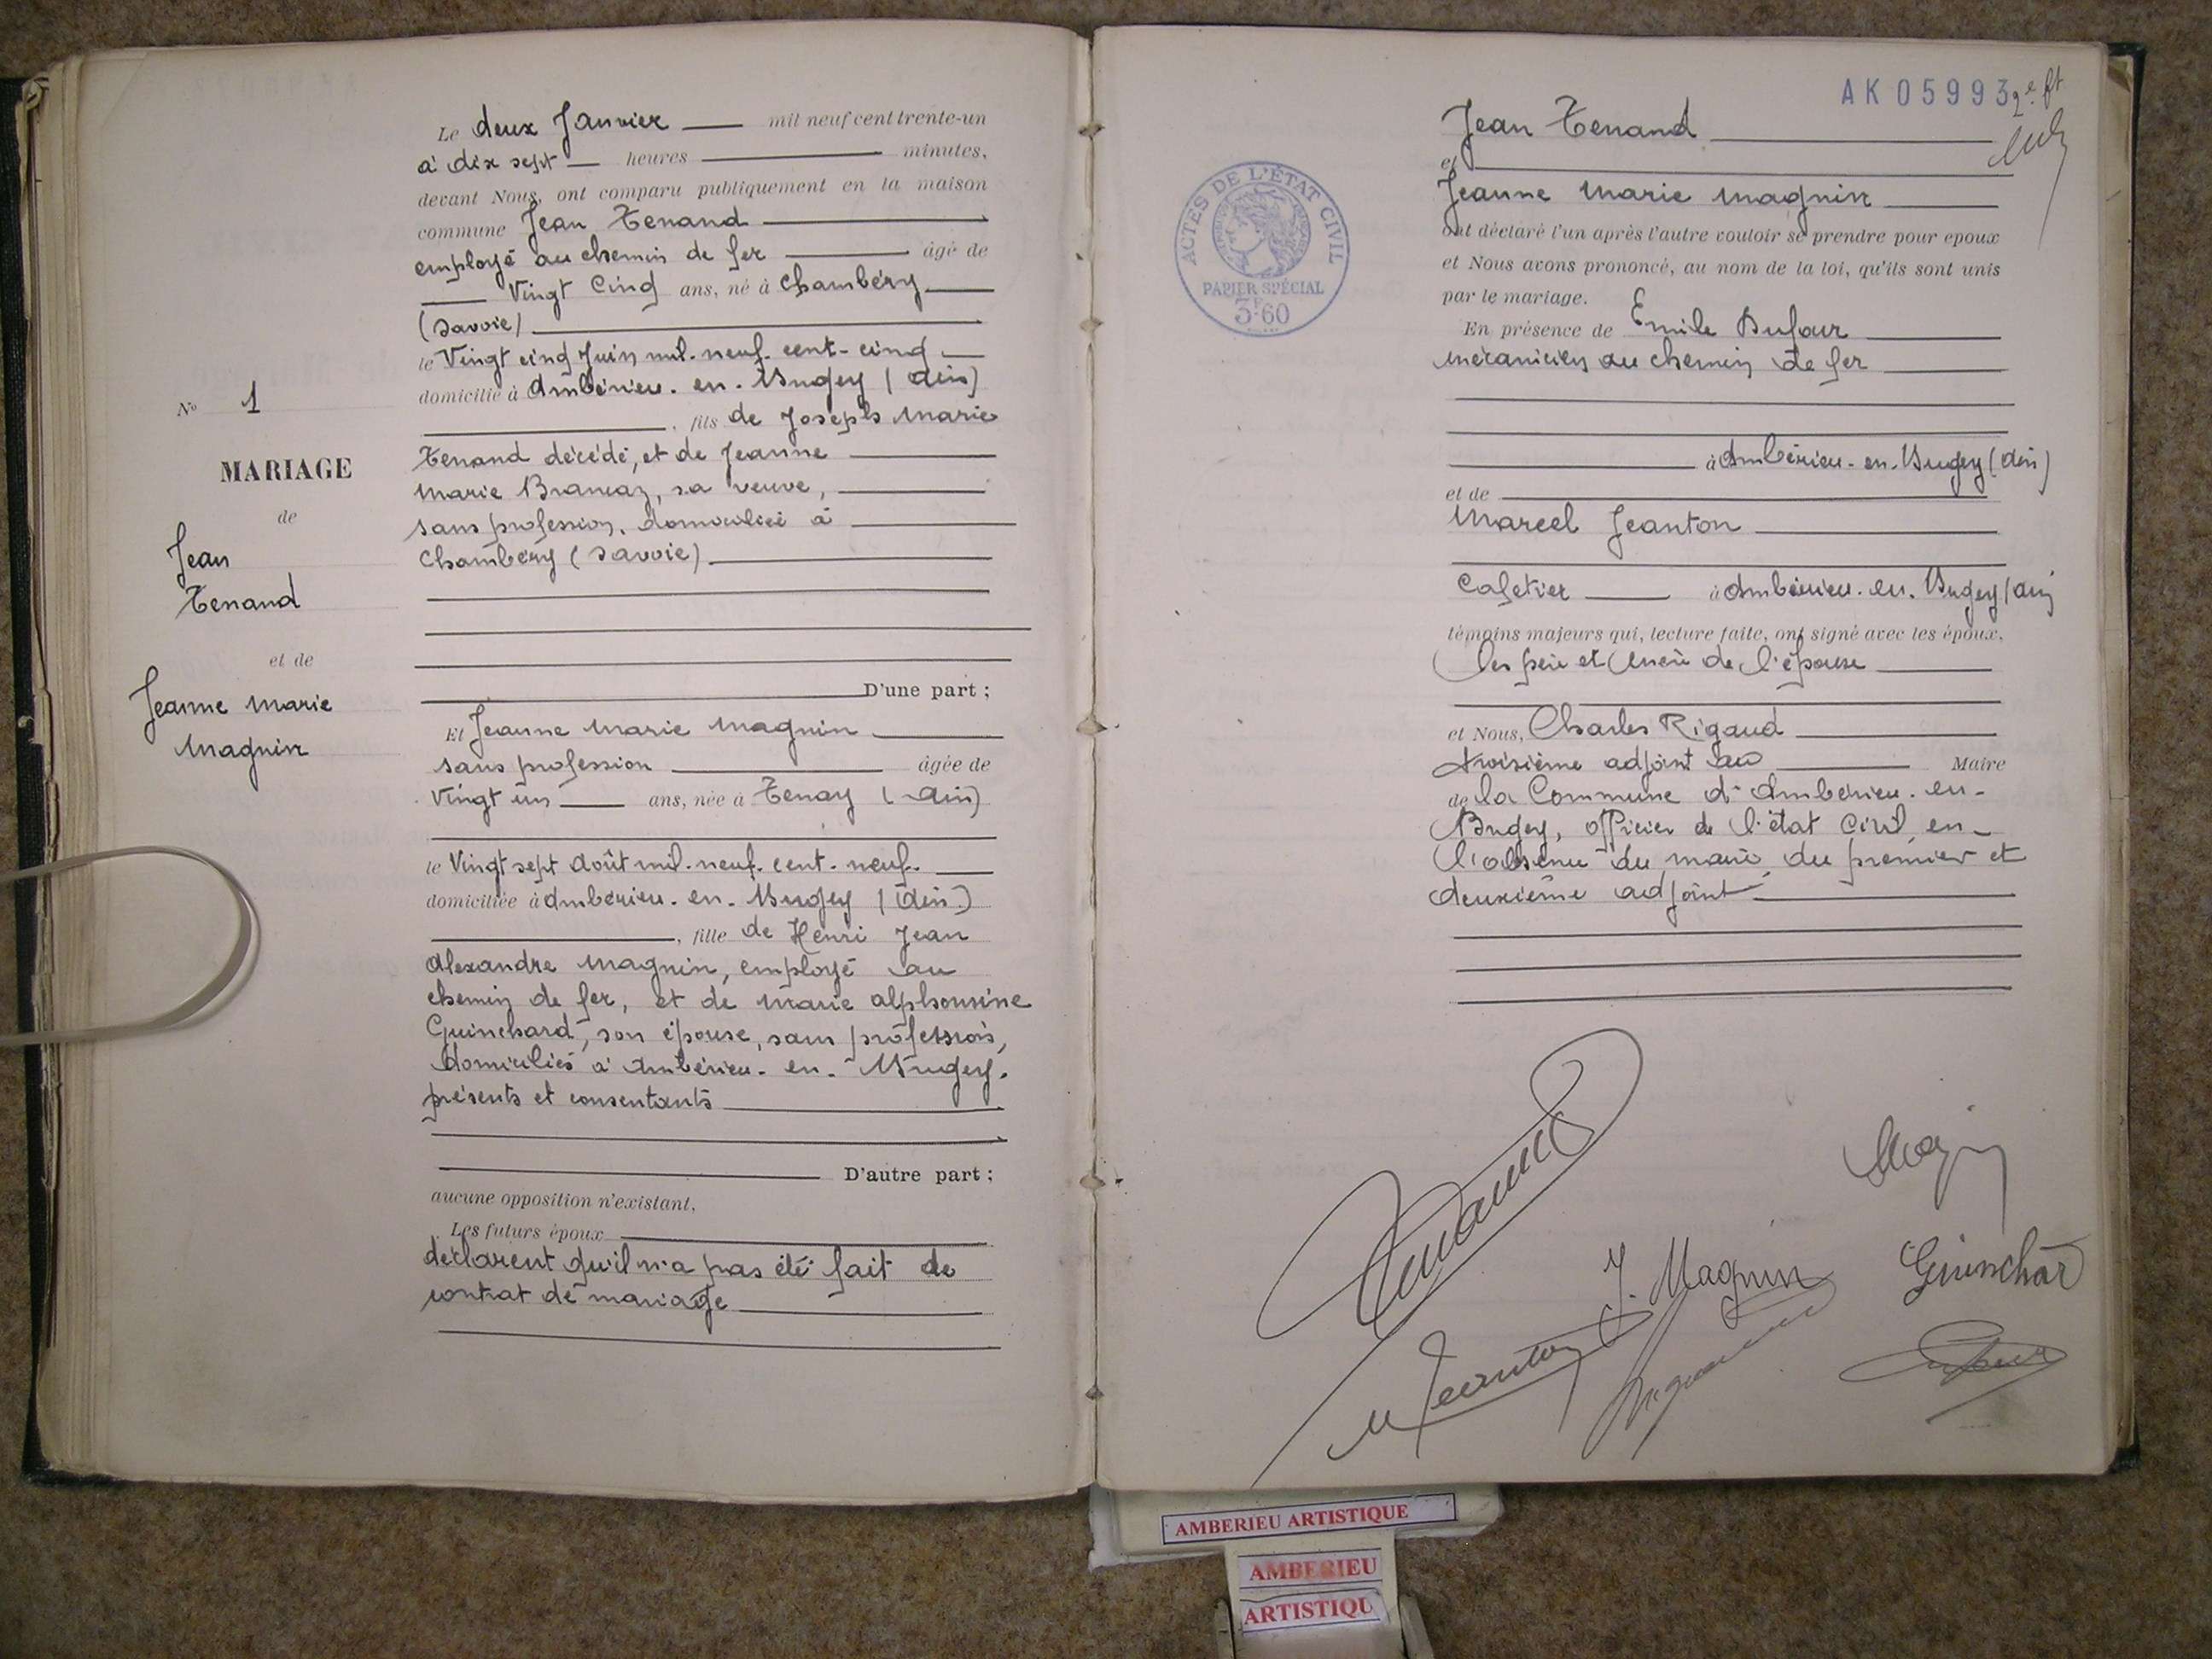 Le deux Janvier mil neuf cent trente-un
à dix sept heures minutes,
devant Nous, ont comparu publiquement en la maison
commune Jean Tenand
employé au chemin de fer âgé de
Vingt Cinq ans, né à Chambéry
(Savoie)
le Vingt cinq Juin mil. neuf. cent. cinq
domicilié à Ambérieu. en. Bugey (Ain)
, fils de Joseph Marie
Tenand décédé, et de Jeanne
Marie Brancaz, sa veuve,
sans profession, domiciliée à
Chambéry (Savoie)
D'une part ;
Et Jeanne Marie Magnin
sans profession âgée de
Vingt un ans, née à Tenay (Ain)
le Vingt sept Août mil. neuf. cent. neuf.
domiciliée à Ambérieu. en. Bugey (Ain)
, fille de Henri Jean
Alexandre Magnin, employé au
chemin de fer, et de Marie Alphonsine
Guinchard, son épouse, sans profession,
domiciliés à Ambérieu. en. Bugey.
présents et consentants
D'autre part ;
aucune opposition n'existant,
Les futurs époux
déclarent qu'il n'a pas été fait de
contrat de mariage
No 1
MARIAGE
de
Jean
Tenand
et de
Jeanne Marie
Magnin
AK 05993
2e ft
Jean Tenand
et
Jeanne Marie Magnin
ont déclaré l'un après l'autre vouloir se prendre pour epoux
et Nous avons prononcé, au nom de la loi, qu'ils sont unis
par le mariage.
En présence de Emile Dufour
mécanicien au chemin de fer
à Ambérieu. en. Bugey (Ain)
et de
Marcel Jeanton
Cafetier à Ambérieu. en. Bugey (Ain)
témoins majeurs qui, lecture faite, ont signé avec les époux,
les père et mère de l'épouse
et Nous, Charles Rigaud
troisième adjoint au Maire
de la Commune d'Ambérieu. en.
Bugey, officier de l'état civil, en
l'absence du maire, du premier et
deuxième adjoint
ACTES DE L'ÉTAT CIVIL
PAPIER SPÉCIAL
3F60
Tenand
Magnin
J. Magnin
Guinchard
M Jeanton
Dufour
AMBERIEU ARTISTIQUE
AMBERIEU
ARTISTIQU